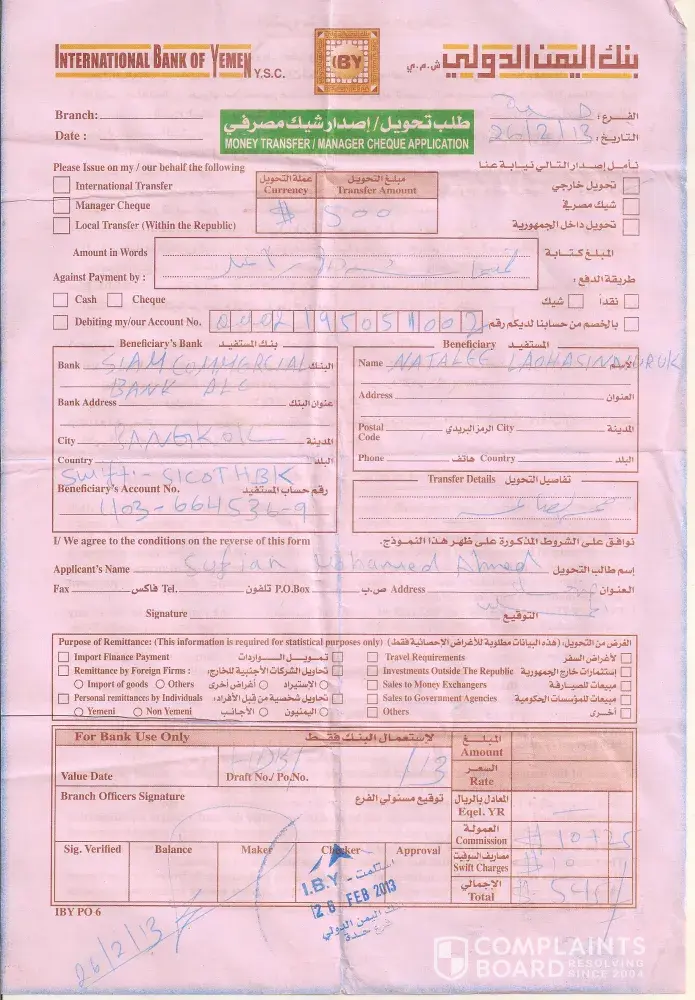 INTERNATIONAL BANK OF YEMEN Y.S.C.
IBY
بنك اليمن الدولي ش.م.ي
Branch: الفرع:
Date : 26/2/13 التاريخ:
طلب تحويل / إصدار شيك مصرفي
MONEY TRANSFER / MANAGER CHEQUE APPLICATION
Please Issue on my / our behalf the following نـأمـل إصدار التـالي نيـابـة عنـا
International Transfer تحويل خارجي
Manager Cheque شيك مصرفي
Local Transfer (Within the Republic) تحويل داخل الجمهورية
عملة التحويل مبلـغ التحويـل
Currency Transfer Amount
$ 500
Amount in Words المبلـغ كـتـابـة
Against Payment by : طريقـة الدفـع :
Cash Cheque شيك نقداً
Debiting my/our Account No. 0002195051002 بالخصم من حسابنا لديكم رقم
Beneficiary's Bank بنـك المستفيـد
Bank SIAM COMMERCIAL البنك
BANK PLC
Bank Address عنوان البنك
City BANGKOK المدينة
Country البلد
Swift:- SICOTHBK
Beneficiary's Account No. رقم حساب المستفيد
1103-664536-9
Beneficiary المستفيـد
Name NATALEE LAOHASINNURUK الإسم
Address العنوان
Postal Code الرمز البريدي City المدينة
Phone هاتف Country البلد
Transfer Details تفاصيل التحويل
I/ We agree to the conditions on the reverse of this form نوافق على الشروط المذكورة على ظهر هذا النموذج.
Applicant's Name Sufian Mohamed Ahmed إسم طالب التحويل
Fax فاكس Tel. تلفون P.O.Box ص.ب Address العنوان
Signature التوقيع
Purpose of Remittance: (This information is required for statistical purposes only) الغرض من التحويل: (هذه البيانات مطلوبة للأغراض الإحصائية فقط)
Import Finance Payment تمويـل الـواردات
Remittance by Foreign Firms : تحاويل الشركات الأجنبية للخارج:
Import of goods Others أغراض أخرى الإستيراد
Personal remittances by Individuals تحاويل شخصية من قبل الأفراد:
Yemeni Non Yemeni الأجانب اليمنيون
Travel Requirements لأغراض السفر
Investments Outside The Republic إستثمارات خارج الجمهورية
Sales to Money Exchangers مبيعات للصيـارفـة
Sales to Government Agencies مبيعات للمؤسسات الحكومية
Others أخـرى
For Bank Use Only لإستعمـال البنـك فقـط
Value Date Draft No./ Po.No. /13
Branch Officers Signature توقيع مسئولي الفرع
Sig. Verified Balance Maker Checker Approval
المبلـغ
Amount
السعـر
Rate
المعادل بالريال
Eqel. YR
العمولـة
Commission $ 10+25
مصاريف السوفيت
Swift Charges $ 10
الإجمالي
Total $ 545
استلمت
I.B.Y
26 FEB 2013
بنك اليمن الدولي
فرع حدة
IBY PO 6
26/2/13
COMPLAINTS
BOARD RESOLVING
SINCE 2004